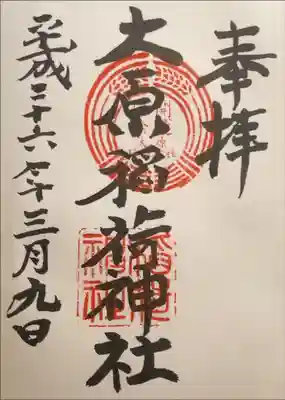 奉拝
大原稲荷神社
平成二十六年三月九日